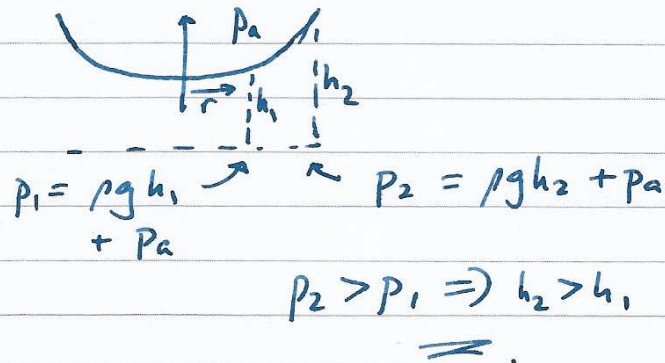 Pa
r h₁ h₂
P₁ = ρgh₁
+ Pa
P₂ = ρgh₂ + Pa
P₂ > P₁ => h₂ > h₁